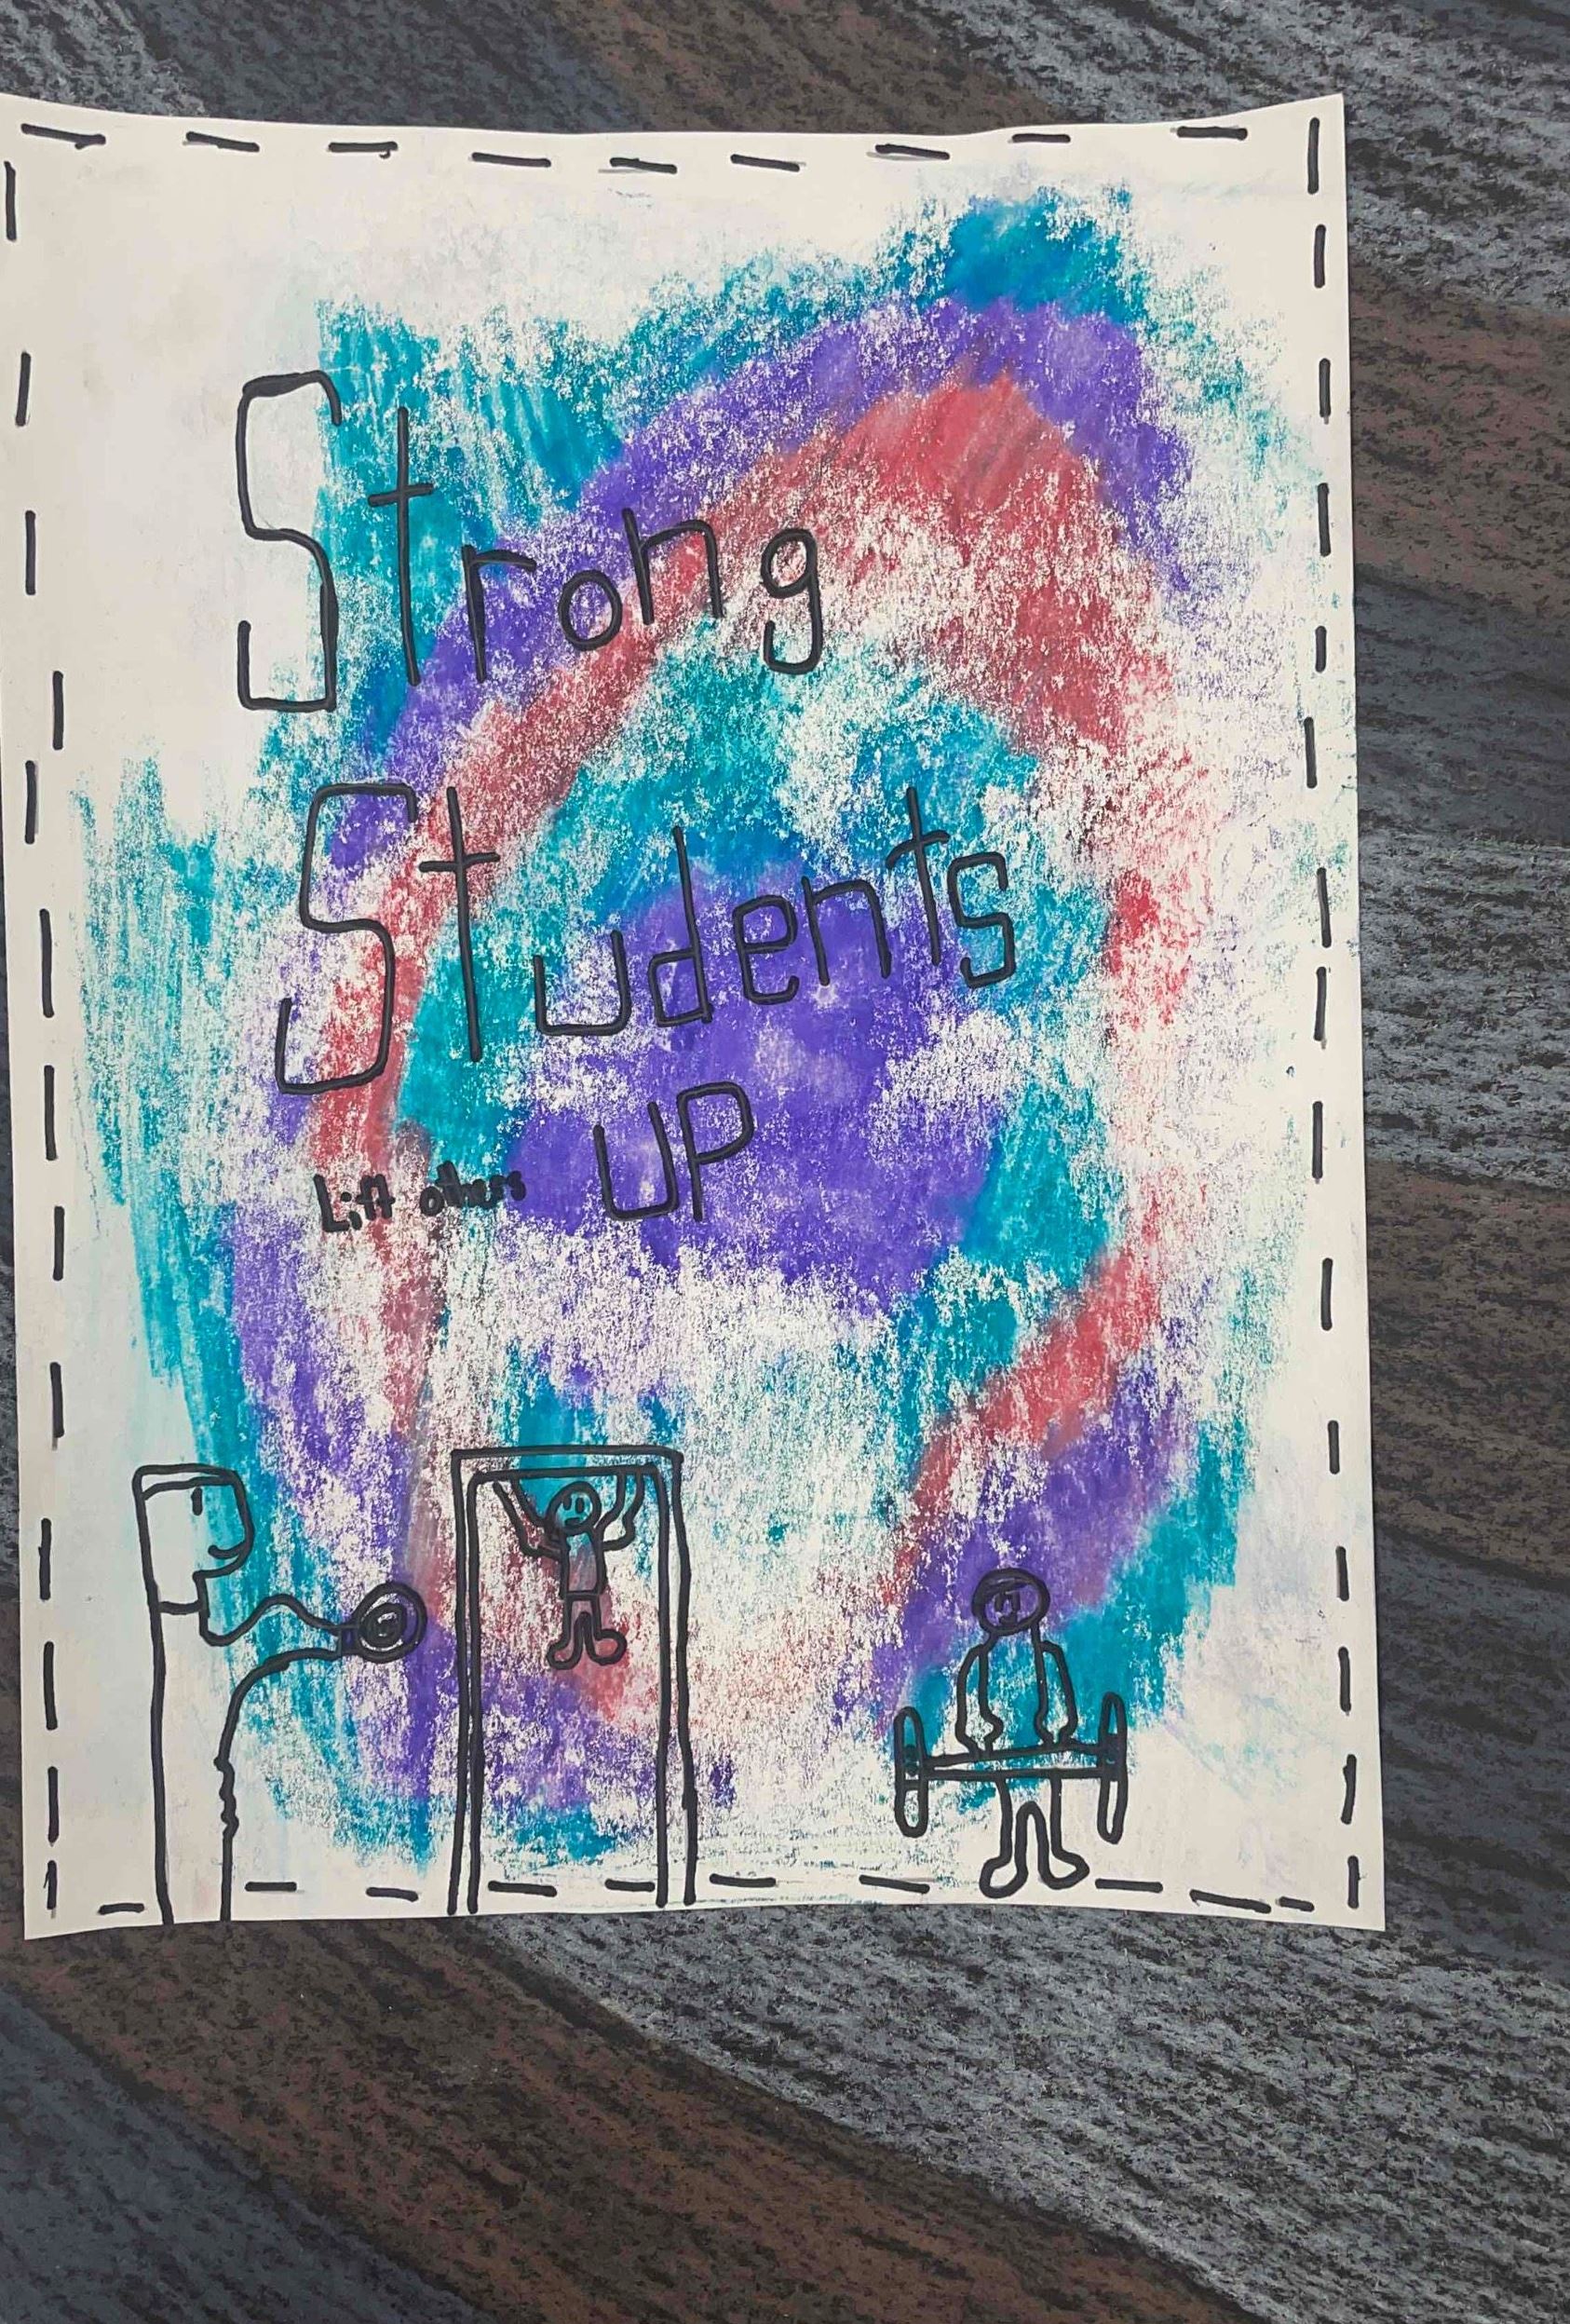 Strong
Students
Lift others UP